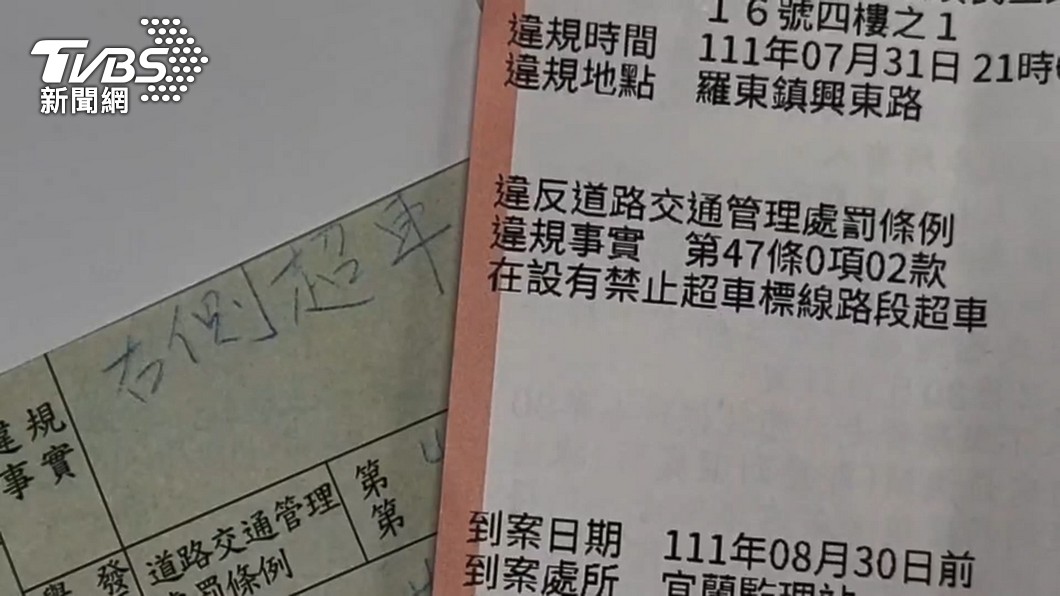 TVBS
新聞網
16號四樓之1
違規時間 111年07月31日 21時
違規地點 羅東鎮興東路
違反道路交通管理處罰條例
違規事實 第47條0項02款
在設有禁止超車標線路段超車
到案日期 111年08月30日前
到案處所 宜蘭監理站
右側超車
違規
事實
第
第
道路交通管理
處罰條例
舉發